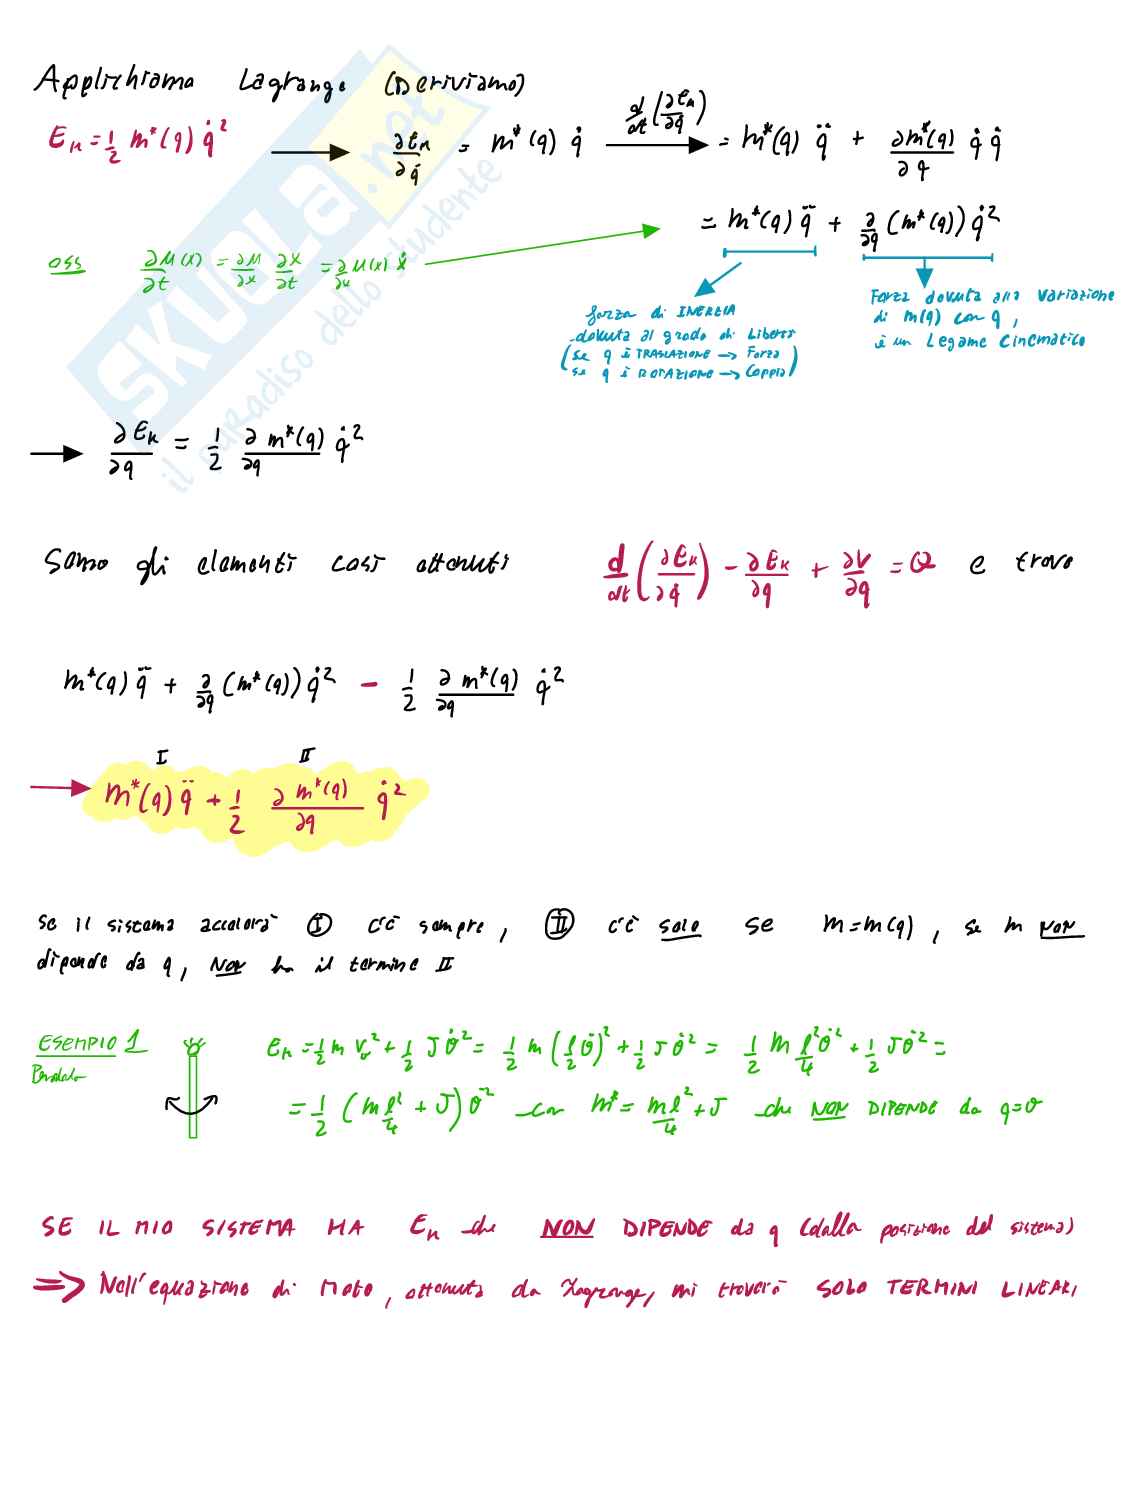 Applichiamo Lagrange (Deriviamo)
E_k = 1/2 m*(q) q̇² → ∂E_k/∂q̇ = m*(q) q̇ d/dt(∂E_k/∂q̇) → = m*(q) q̈ + ∂m*(q)/∂q q̇ q̇
= m*(q) q̈ + ∂/∂q (m*(q)) q̇²
oss ∂M(x)/∂t = ∂M/∂x ∂x/∂t = ∂/∂x M(x) ẋ
forza di INERZIA
dovuta al grado di Libertà
(se q è TRASLAZIONE → Forza
se q è ROTAZIONE → Coppia)
Forza dovuta alla variazione
di m(q) con q,
è un Legame Cinematico
→ ∂E_k/∂q = 1/2 ∂m*(q)/∂q q̇²
Sommo gli elementi così ottenuti d/dt(∂E_k/∂q̇) - ∂E_k/∂q + ∂V/∂q = Q e trovo
m*(q) q̈ + ∂/∂q (m*(q)) q̇² - 1/2 ∂m*(q)/∂q q̇²
I II
→ m*(q) q̈ + 1/2 ∂m*(q)/∂q q̇²
se il sistema accelera I c'è sempre, II c'è solo se m=m(q), se m NON
dipende da q, NON ho il termine II
ESEMPIO 1 E_k = 1/2 m v_G² + 1/2 J θ̇² = 1/2 m (l/2 θ̇)² + 1/2 J θ̇² = 1/2 m l²/4 θ̇² + 1/2 J θ̇² =
Pendolo
= 1/2 (m l²/4 + J) θ̇² con m* = ml²/4 + J che NON DIPENDE da q=θ
SE IL MIO SISTEMA HA E_k che NON DIPENDE da q (dalla posizione del sistema)
⇒ Nell'equazione di moto, ottenuta da Lagrange, mi troverò SOLO TERMINI LINEARI
SKUOLA.net
il paradiso dello studente